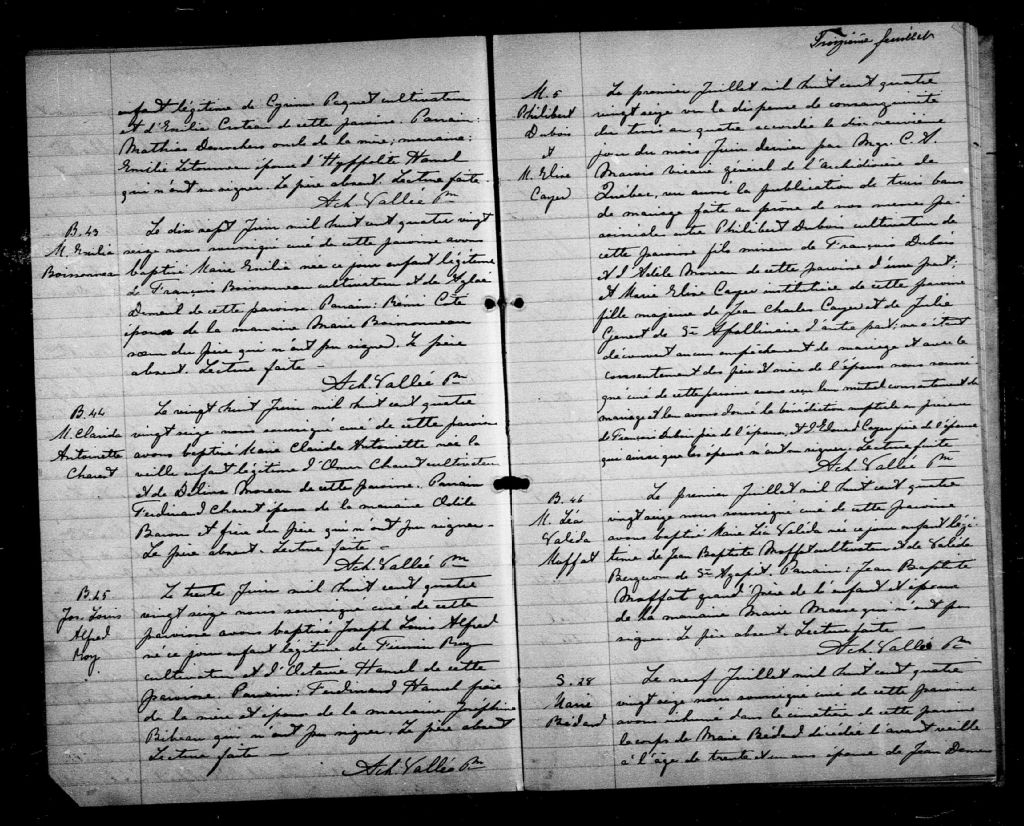 fant légitime de Cyrinus Paquet cultivateur
et d'Emilie Croteau de cette paroisse. Parrain:
Mathias Desrochers oncle de la mère; marraine:
Emilie Letourneau épouse d'Hyppolite Hamel
qui n'ont su signer. Le père absent. Lecture faite.
Ach. Vallée Ptre
B. 43
M. Emilia
Boissonneau
Le dix sept Juin mil huit cent quatre vingt
seize nous soussigné curé de cette paroisse avons
baptisé Marie Emilia née ce jour enfant légitime
de François Boissonneau cultivateur et de Aglaé
Demeul de cette paroisse. Parrain: Rémi Coté
époux de la marraine Marie Boissonneau
sœur du père qui n'ont pu signer. Le père
absent. Lecture faite —
Ach. Vallée Ptre
B. 44
M. Clarida
Antoinette
Charest
Le vingt huit Juin mil huit cent quatre
vingt seize nous soussigné curé de cette paroisse
avons baptisé Marie Clarida Antoinette née la
veille enfant légitime d'Omer Charest cultivateur
et de Delima Moreau de cette paroisse. Parrain
Ferdinand Charest époux de la marraine Odile
Baron et frère du père qui n'ont pu signer —
Le père absent. Lecture faite —
Ach. Vallée Ptre
B. 45
Jos. Louis
Alfred
Roy
Le trente Juin mil huit cent quatre
vingt seize nous soussigné curé de cette
paroisse avons baptisé Joseph Louis Alfred
né ce jour enfant légitime de Firmin Roy
cultivateur et d'Octavie Hamel de cette
paroisse. Parrain: Ferdinand Hamel frère
de la mère et époux de la marraine Josephine
Bibeau qui n'ont pu signer. Le père absent
Lecture faite —
Ach. Vallée Ptre
Troisième feuillet
M. 5
Philibert
Dubois
et
M. Elise
Cayer
Le premier Juillet mil huit cent quatre
vingt seize vu la dispense de consanguinité
du trois au quatre accordée le dix neuvième
jour du mois Juin dernier par Mgr. C. A.
Marois vicaire général de l'Archidiocèse de
Québec, vu aussi la publication de trois bans
de mariage faite au prône de nos messes pa-
roissiales entre Philibert Dubois cultivateur de
cette paroisse fils mineur de François Dubois
et d'Adèle Moreau de cette paroisse d'une part;
et Marie Elise Cayer institutrice de cette paroisse
fille majeure de Jean Charles Cayer et de Julie
Genest de St Apollinaire d'autre part; ne s'étant
découvert aucun empêchement de mariage et avec le
consentement des père et mère de l'époux nous soussi-
gné curé de cette paroisse avons reçu leur mutuel consentement de
mariage et leur avons donné la bénédiction nuptiale en présence
de François Dubois père de l'époux, et d'Edmond Cayer frère de l'épouse
qui ainsi que les époux n'ont su signer. Lecture faite
Ach. Vallée Ptre
B. 46
M. Léa
Valida
Moffat
Le premier Juillet mil huit cent quatre
vingt seize nous soussigné curé de cette paroisse
avons baptisé Marie Léa Valida née ce jour enfant légi-
time de Jean Baptiste Moffat cultivateur et de Valida
Bergeron de St Agapit. Parrain: Jean Baptiste
Moffat grand'père de l'enfant et époux
de la marraine Marie Masse qui n'ont pu
signer. Le père absent. Lecture faite —
Ach. Vallée Ptre
S. 28
Marie
Bédard
Le neuf Juillet mil huit cent quatre
vingt seize nous soussigné curé de cette paroisse
avons inhumé dans le cimetière de cette paroisse
le corps de Marie Bédard décédée l'avant veille
à l'âge de trente et un ans épouse de Jean Demers